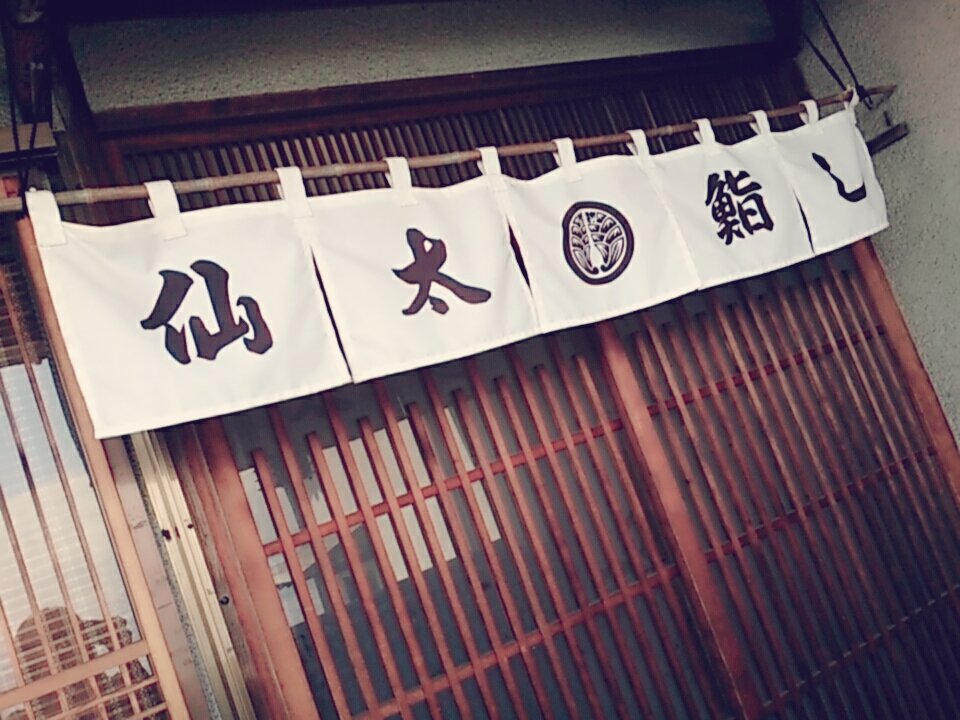 仙太鮨し